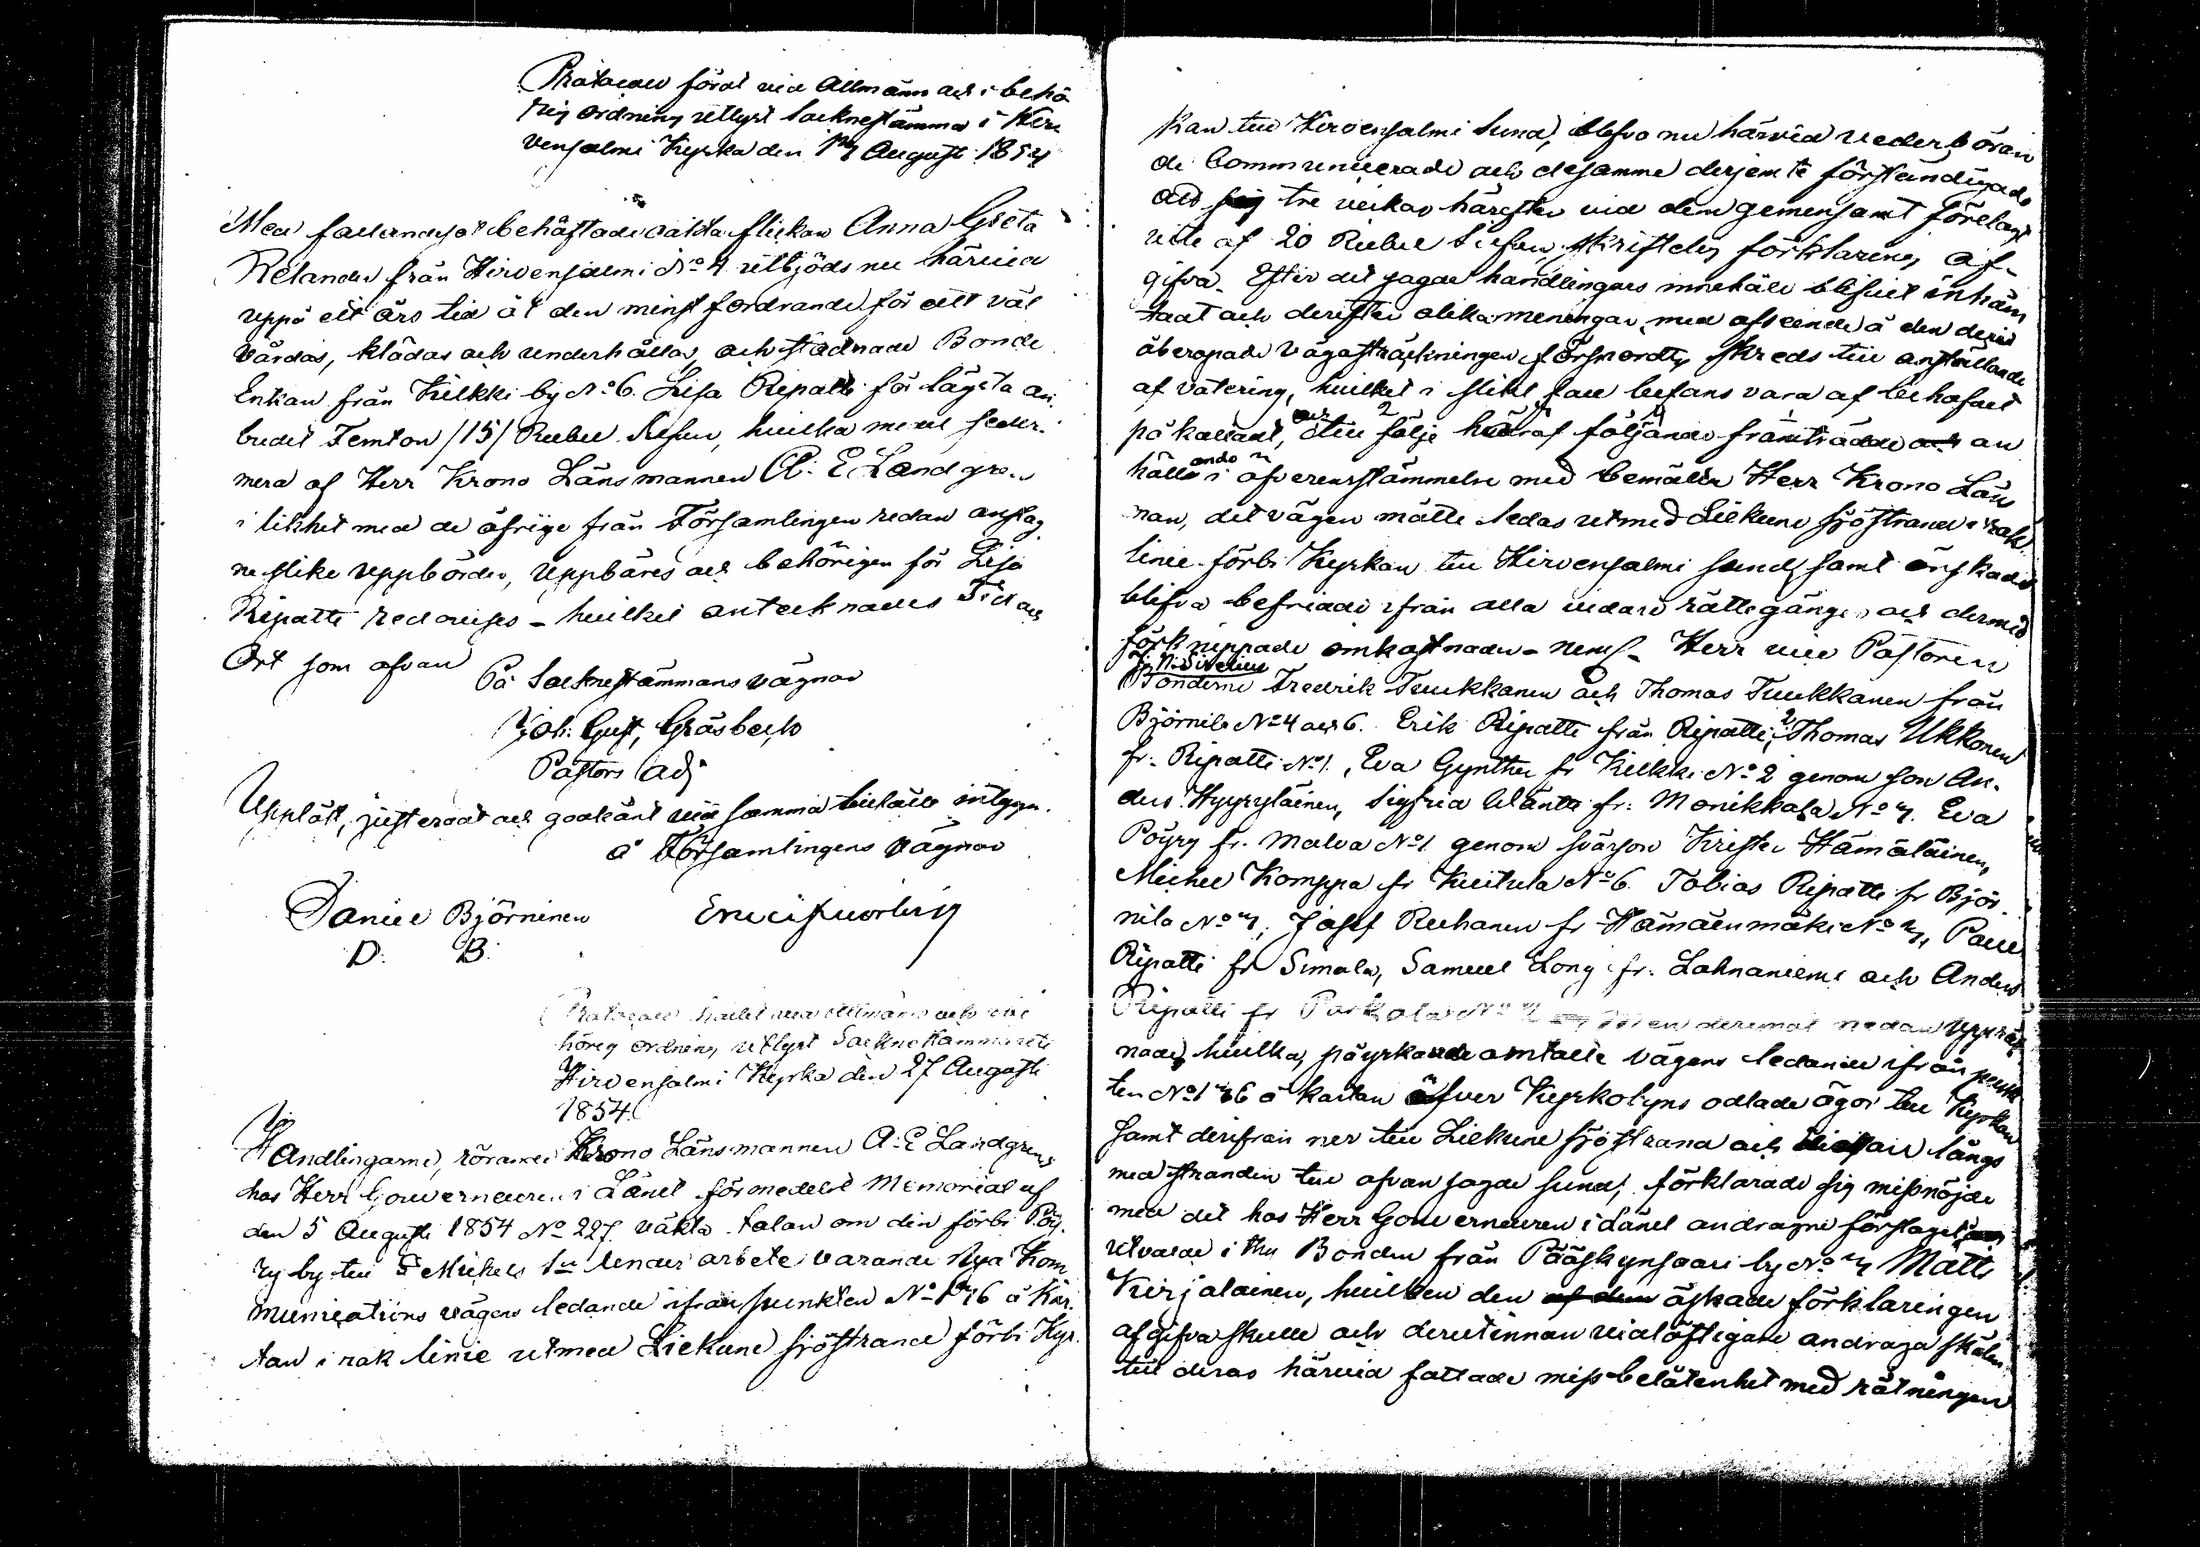 Protocoll fördt vid Allmänn och i behö
rig ordning utlyst Socknestämma i Hir
vensalmi Kyrka den 1 August 1854
Med fallandesot behäftade arma flickan Anna Greta
Relander från Hirvensalmi No 4 utbjöds nu härvid
uppå ett års tid åt den minst fordrande för att väl
vårdas, klädas och underhållas, och stadnade Bonde
Enkan från Kilkki by No 6. Lisa Ripatti för lägsta an
budet Femton /15/ Rubel Silfver, hvilka medel
mera af Herr Krono Länsmannen A. E Landgren
i likhet med de öfrige från Församlingen redan anslag
ne slike uppbörder, uppbäres och behörigen för Lisa
Ripatti redovises - hvilket antecknades Tid och
Ort som ofvan
På Socknestämmans vägnar
Joh: Gust, Gråsbeck
Pastors Adj
Uppläst, justeradt och godkänt vid samma tillfälle intyga.
å Församlingens vägnar
Daniel Björninen
D. B.
Protocoll hållet vid Allmänn och i be
hörig ordning utlyst Sockne
Hirvensalmi Kyrka den 27 Augusti
1854.
Handlingarne, rörande Krono Länsmannen A: E Landgrens
hos Herr Gouverneuren i Länet förmedelst Memorial af
den 5 Augusti 1854 No 227 väkta talan om den förbi Pöy
ry by till St Michels under arbete varande Nya Kom
munications vägens ledande ifrån punkten No 176 å Kar
tan i rak linie utmed Liekune sjöstrand förbi Kyr
kan till Hirvensalmi Sund, blefvo nu härvid vederböran
de Communicerade och desamme derjemte förständigade
att tre veckor härefter vid den gemensamt förelagt
vite af 20 Rubel Silfver, skriftelig förklaring af-
gifva. Efter det sagde handlingars innehåll blifvit inhäm
tadt och derefter olika meningar med afseende å den deri
åberopade vägasträckningen försports, skreds till anställande
af votering, hvilket i slikt fall befans vara af behofvet
påkalladt, och till följe häraf följande framträdde an
hållande i öfverensstämmelse med bemälde Herr Krono Läns
man, det vägen måtte ledas utmed Liekune sjöstrand i rak
linie förbi Kyrkan till Hirvensalmi sund, samt önskade
blifva befriade ifrån alla vidare rättegånger och dermed
förknippade omkostnader - neml - Herr vice Pastoren
Bönderne Fredrik Tuukkanen och Thomas Tuukkanen från
Björnilä No 4 och 6. Erik Ripatti från Ripatti 2, Thomas Ukkonen
fr. Ripatti No 1, Eva Gynther fr Kilkki No 2 genom son An-
ders Hyyryläinen, Sigfrid fr. Monikkala No 7. Eva
Pöyry fr. Malva No 1 genom svärson Krister Hämäläinen,
Michel Komppa fr Kuitula No 6. Tobias Ripatti fr Björ
nilä No 7, Josef Ruhanen fr Hämäenmäki No 7, Paul
Ripatti fr Simola, Samuel Long fr. Lahnaniemi och Anders
Ripatti fr Parkola No Men deremot nedan uppräk
nade, hvilka, påyrkande omtalte vägens ledande ifrån punk
ten No 176 å kartan öfver Kyrkobyns odlade ägor till Kyrkan
samt derifrån ner till Liekune sjöstrand och längs
med stranden till ofvansagde sund, förklarade sig missnöjde
med det hos Herr Gouverneuren i Länet andragne förslaget
utvalde i thy Bonden från Pääskynsaari by No 7 Matti
Kirjalainen, hvilken den äskade förklaringen
afgifva skulle och derutinnan vidlöftigare andraga skälen
till deras härvid fattade missbelåtenhet med rätningen